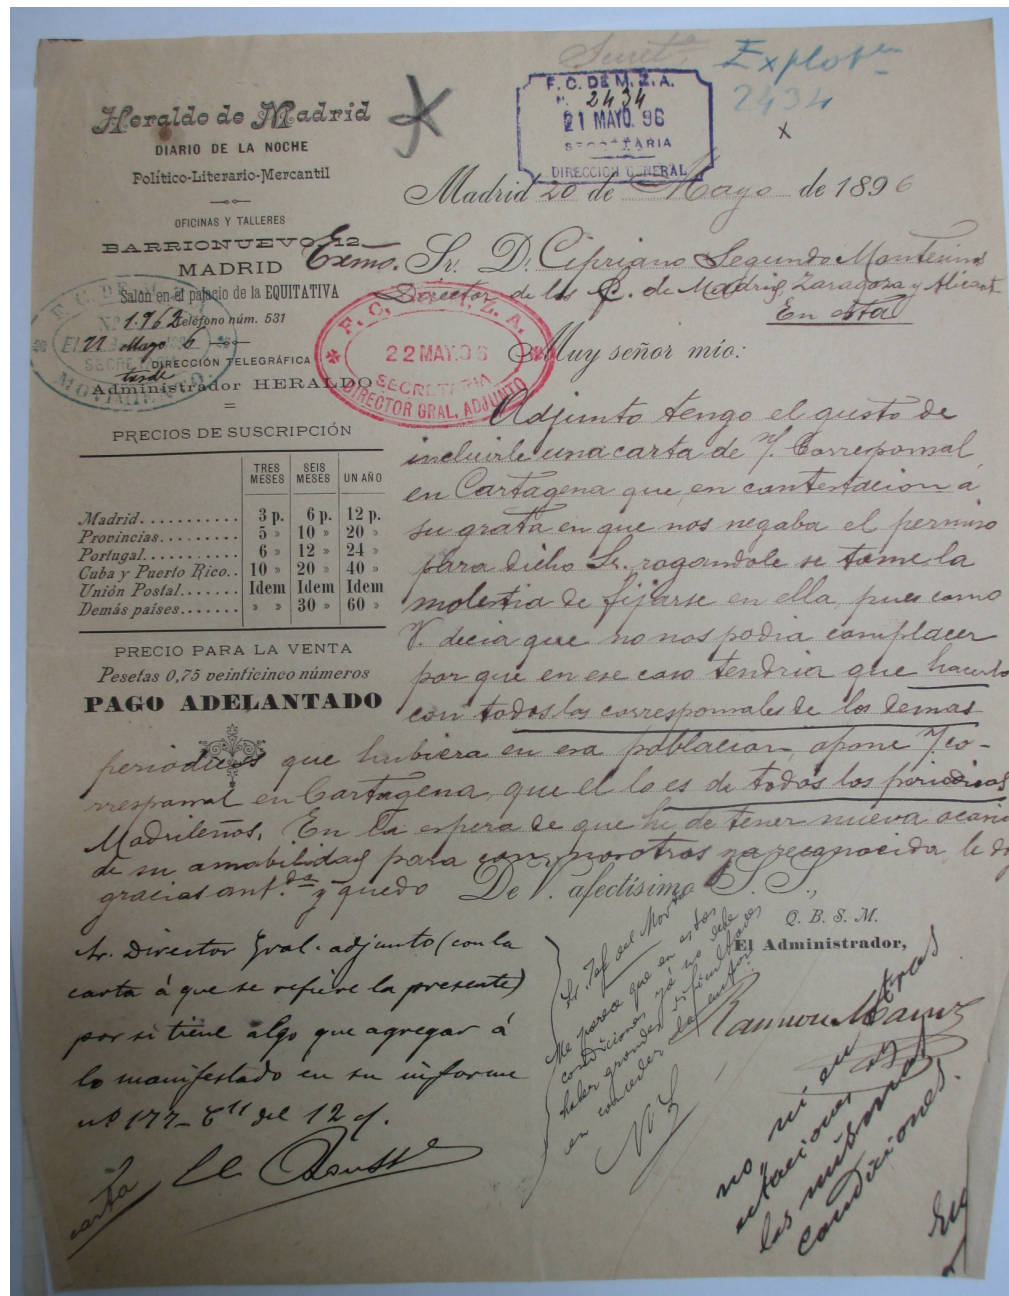 Secretª
Explotón
2434
x
F. C. DE M. Z. A.
N. 2434
21 MAYO. 96
SECRETARIA
DIRECCION GENERAL
Heraldo de Madrid
DIARIO DE LA NOCHE
Político-Literario-Mercantil
OFICINAS Y TALLERES
BARRIONUEVO, 12
MADRID
Salón en el palacio de la EQUITATIVA
Teléfono núm. 531
DIRECCIÓN TELEGRÁFICA
Administrador HERALDO
F. C. DE M.
Nº 1.962
El 22 Mayo 6
SECRETARIA
tarde
MOVIMIENTO.
F. C. M. Z. A.
22 MAY. 96
SECRETARIA
DIRECTOR GRAL. ADJUNTO
PRECIOS DE SUSCRIPCIÓN
TRES MESES SEIS MESES UN AÑO
Madrid 3 p. 6 p. 12 p.
Provincias 5 » 10 » 20 »
Portugal 6 » 12 » 24 »
Cuba y Puerto Rico 10 » 20 » 40 »
Unión Postal Idem Idem Idem
Demás paises » » 30 » 60 »
PRECIO PARA LA VENTA
Pesetas 0,75 veinticinco números
PAGO ADELANTADO
Madrid 20 de Mayo de 1896
Exmo. Sr. D. Cipriano Segundo Montesinos
Director de los F. C. de Madrid, Zaragoza y Alicante
En esta
Muy señor mío:
Adjunto tengo el gusto de
incluirle una carta de n/. Corresponsal
en Cartagena que, en contestacion á
su grata en que nos negaba el permiso
para dicho Sr. rogandole se tome la
molestia de fijarse en ella, pues como
V. decia que no nos podia complacer
por que en ese caso tendria que hacerlo
con todos los corresponsales de los demas
periódicos que hubiera en esa poblacion, opone n/ co-
rresponsal en Cartagena, que el lo es de todos los periodicos
Madrileños. En la espera de que ha de tener nueva ocasion
de su amabilidad para con nosotros ya reconocida le doy
gracias ant.das y quedo De V. afectísimo S. S.,
Q. B. S. M.
El Administrador,
Sr. Director Gral. adjunto (con la
carta á que se refiere la presente)
por si tiene algo que agregar á
lo manifestado en su informe
nº 177- del 12 ct.
carta
Sr. Jefe del Movto
Me parece que en estas
condiciones yá no debe
haber grandes dificultades
en conceder la
no, ni en otras
estaciones, y
las mismas
condiciones.